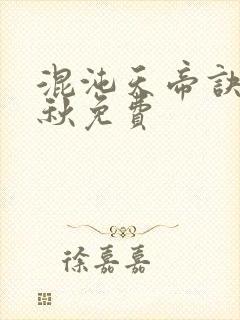 混沌天帝訣
秋免費
徐嘉嘉